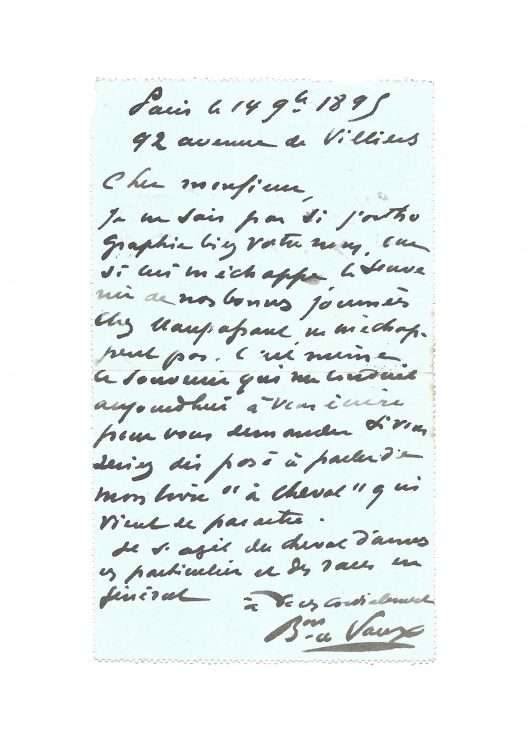 Paris le 14 9bre 1895
92 avenue de Villiers
Cher monsieur,
Je ne sais pas si j'ortho
graphie bien votre nom, car
si lui m'échappe le souve
nir de nos bonnes journées
chez Maupassant ne m'échap-
pent pas. C'est même
le souvenir qui me conduit
aujourdhui à vous écrire
pour vous demander si vous
seriez disposé à parler de
mon livre "à cheval" qui
vient de paraitre.
Il s'agit du cheval d'armes
en particulier et des races en
général
à vous cordialement
Bon de Vaux